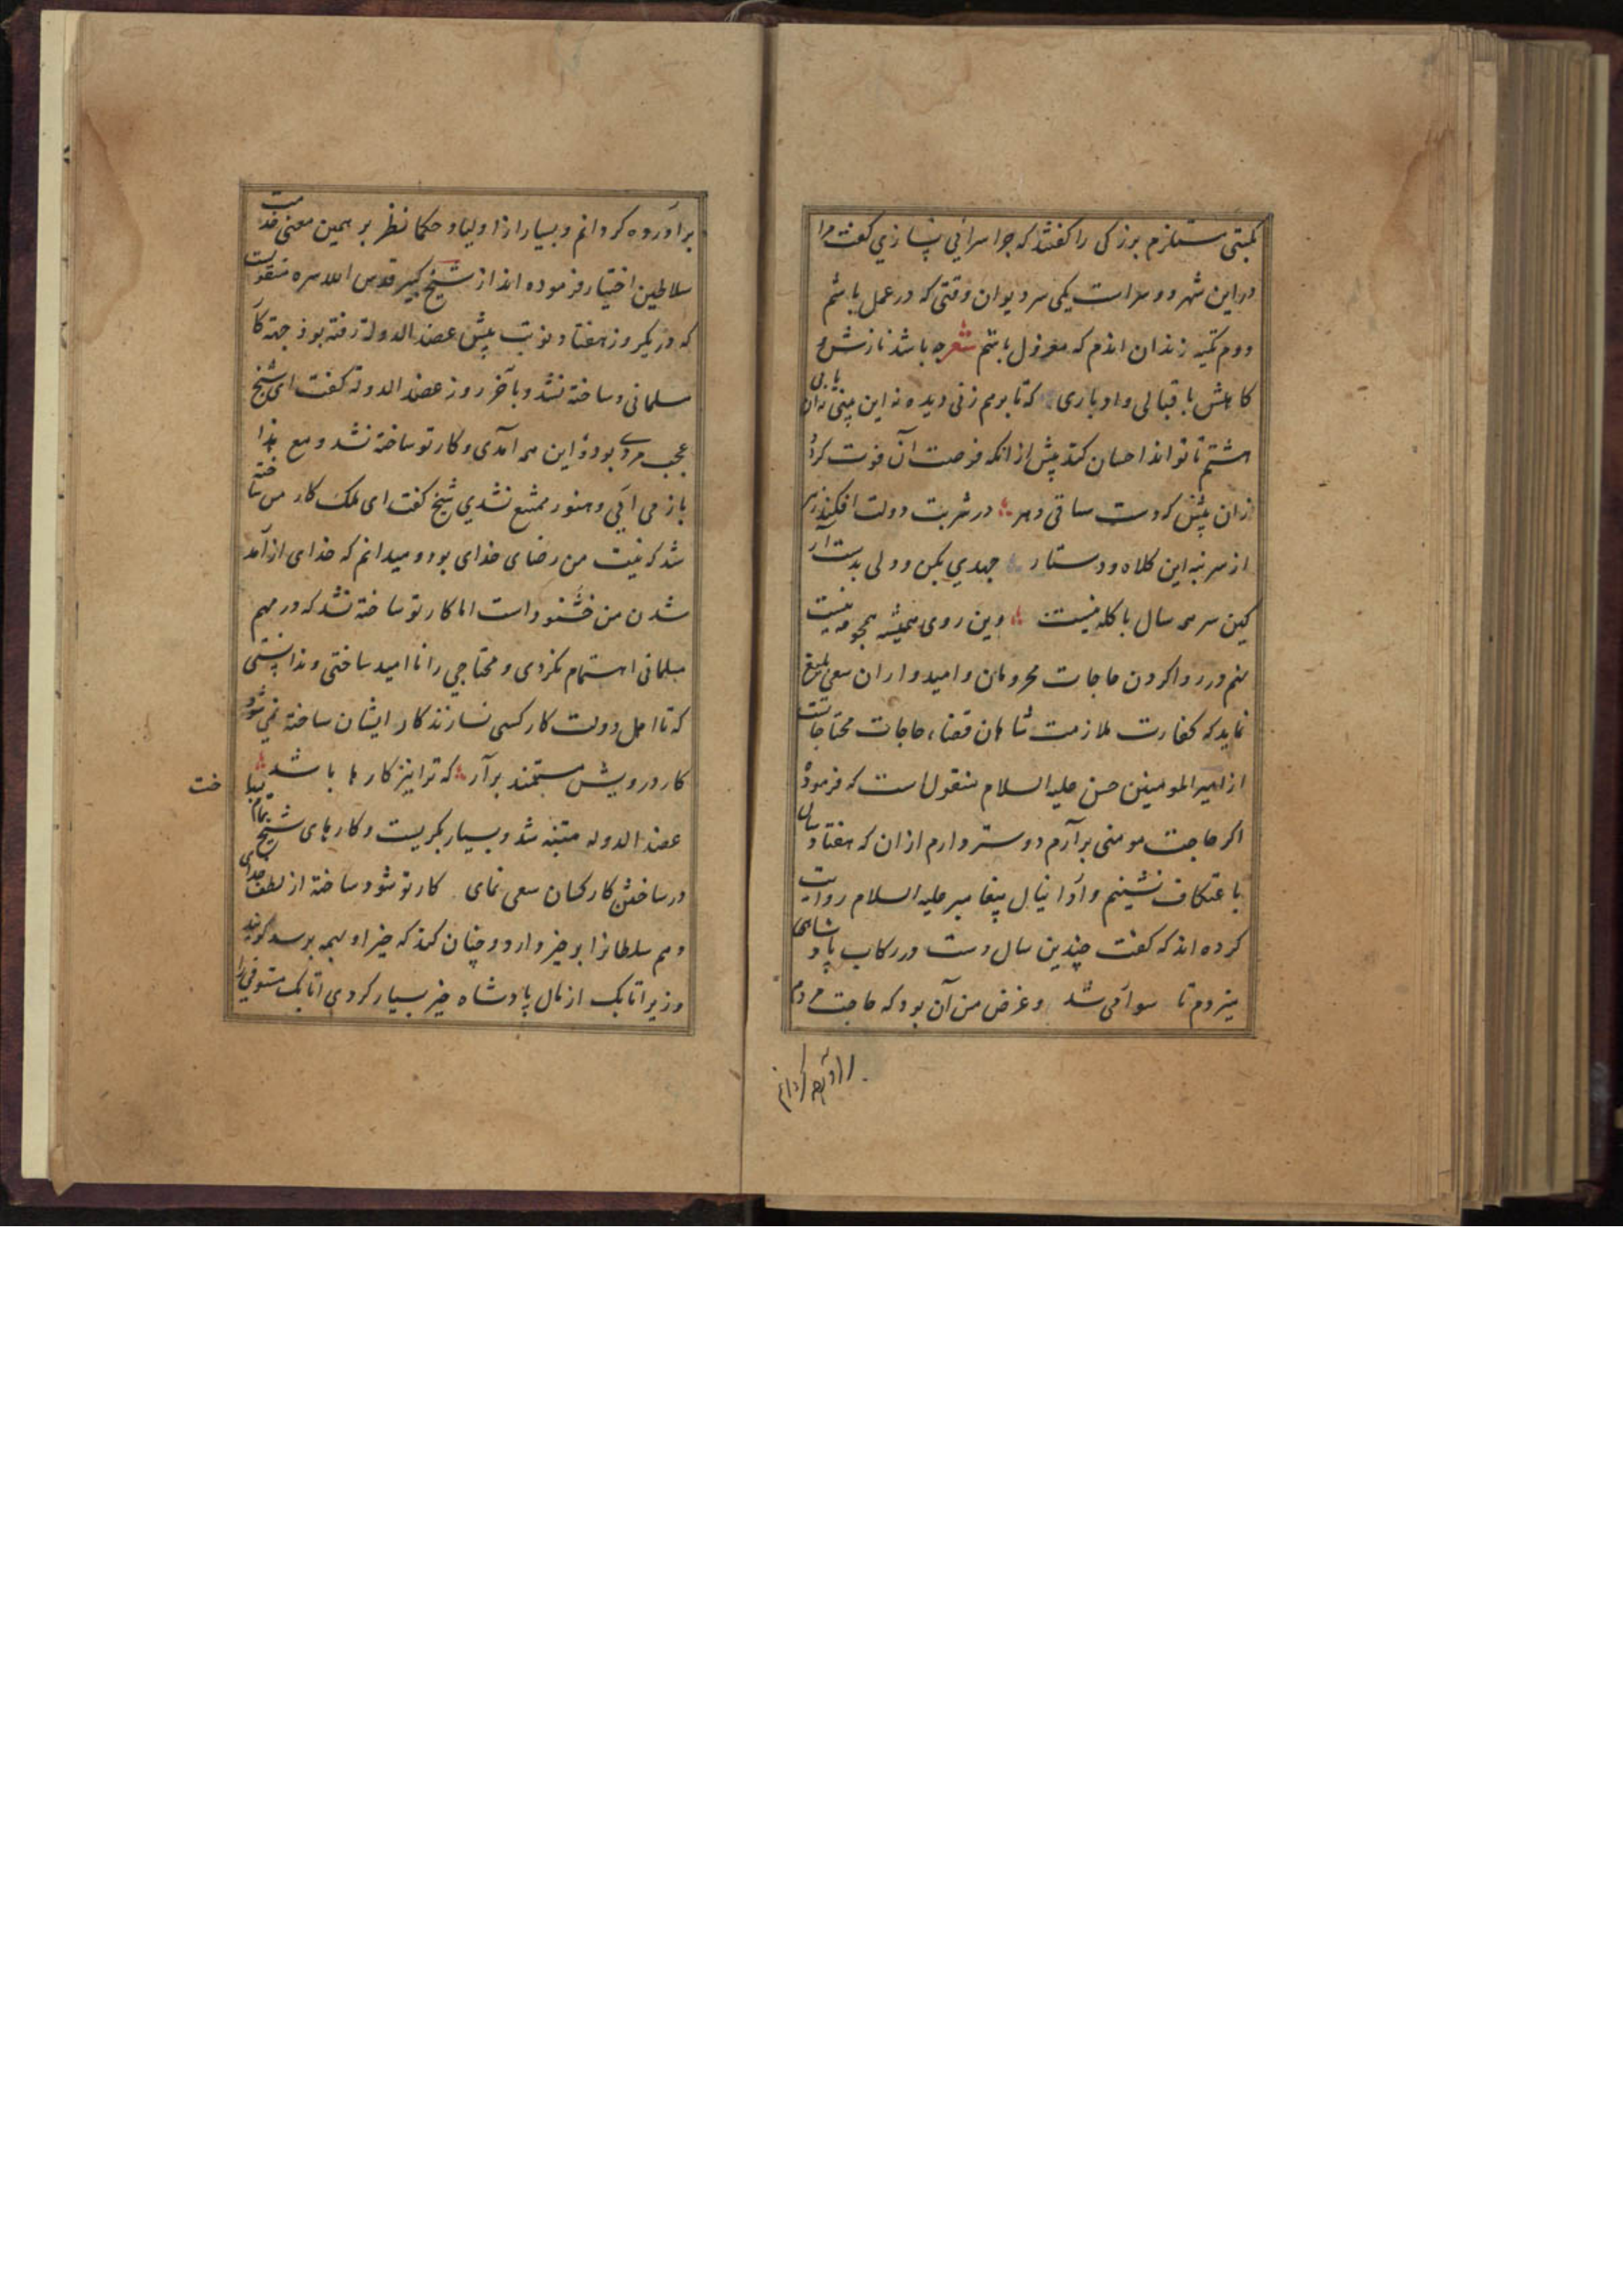 نکبتی مستلزم بزرکی را کفتند که چرا سرائی نسازی کفت مرا
در این شهر دو سراست یکی سر دیوان وقتی که در عمل باشم
دوم تکیه زندان اندم که معزول باشم شعر چه باشد نازش و
کاهش باقبالی و ادباری که تا برهم زنی دیده نه این بینی نه آن یابی
هشتم تا تواند احسان کند پیش از انکه فرصت آن فوت کردد
زان پیش که دست ساقی دهر در شربت دولت افکند زهر
از سر بنه این کلاه و دستار جهدی بکن و دلی بدست آر
کین سر همه سال با کله نیست وین روی همیشه همچو مه نیست
نهم در روا کردن حاجات محرومان و امیدواران سعی بلیغ
نماید که کفارت ملازمت شاهان قضاء حاجات محتاجانست
از امیر المومنین حسن علیه السلام منقول است که فرمود
اکر حاجت مومنی برآرم دوستر دارم از ان که هفتاد سال
باعتکاف نشینم و از دانیال پیغامبر علیه السلام روایت
کرده اند که کفت چندین سال دست در رکاب پادشاهی
میزدم تا سوار می شد و غرض من آن بود که حاجت مردم
برآورده کردانم
برآورده کردانم و بسیار از اولیا و حکما نظر بر همین معنی خدمت
سلاطین اختیار فرموده اند از شیخ کبیر قدس الله سره منقولست
که در یکروز هفتاد نوبت پیش عضد الدولة رفته بود جهة کار
مسلمانی و ساخته نشد و بآخر روز عضد الدولة کفت ای شیخ
عجب مردی بوده این همه آمدی و کار تو ساخته نشد و مع هذا
باز می آئی و هنوز ممتنع نشدی شیخ کفت ای ملک کار من ساخته
شد که نیت من رضای خدای بود و میدانم که خدای از آمد
شدن من خشنود است اما کار تو ساخته نشد که در مهم
مسلمانی اهتمام نکردی و محتاجی را ناامید ساختی و ندانستی
که تا اهل دولت کار کسی نسازند کار ایشان ساخته نمی شود
کار درویش مستمند برآر که ترا نیز کارها باشد
خت
عضد الدوله متنبه شد و بسیار بکریست و کارهای شیخ تمام
در ساختن کار کسان سعی نمای کار تو شود ساخته از لطف خدای
دهم سلطانرا بر خیر دارد و چنان کند که خیر او بهمه برسد کویند
وزیر اتابک از مال پادشاه خیر بسیار کردی اتابک مستوفی را